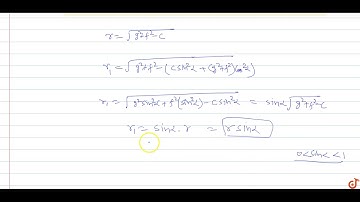 r = √(g²+f²-c)
r₁ = √(g²+f² - (c sin²α + (g²+f²) cos²α))
r₁ = √(g² sin²α + f² (sin²α) - c sin²α) = sinα √(g²+f²-c)
r₁ = sinα · r = r sinα
0 < sinα < 1